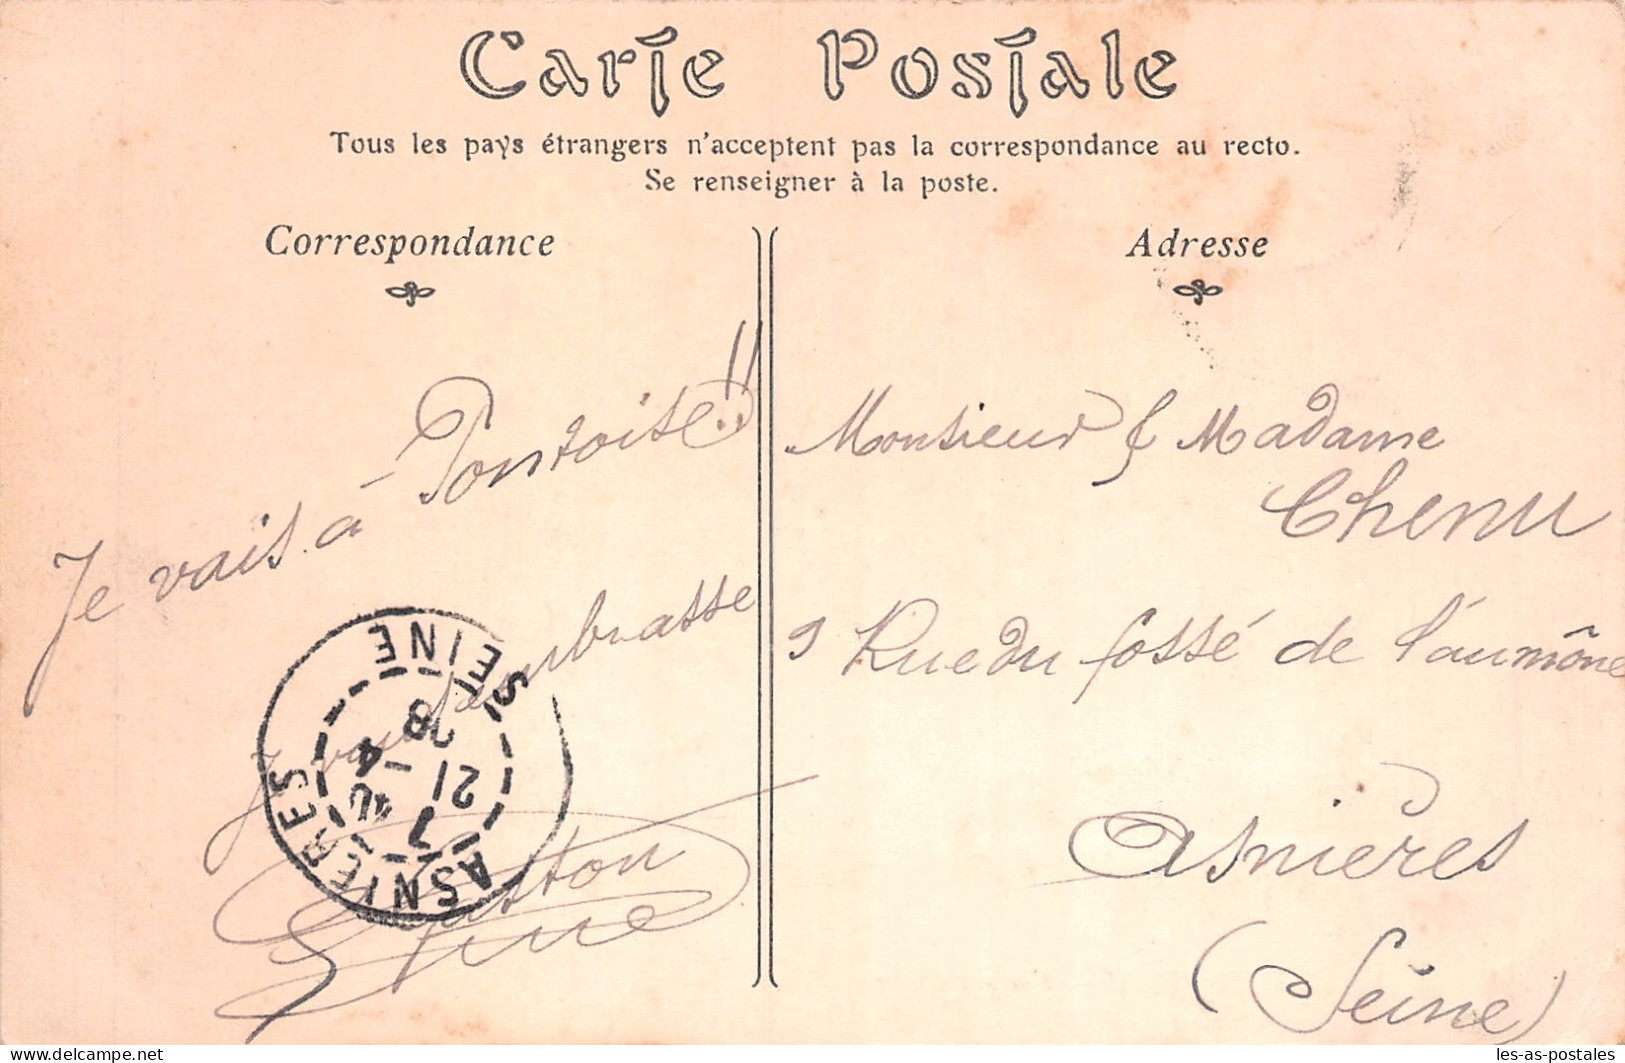 Carte Postale
Tous les pays étrangers n'acceptent pas la correspondance au recto.
Se renseigner à la poste.
Correspondance
Adresse
Je vais à Pontoise!!
Je vous embrasse
Gaston
Monsieur & Madame
Chenu
9 Rue du fossé de l'aumône
Asnières
(Seine)
ASNIERES
SEINE
21 - 4
08
les-as-postales